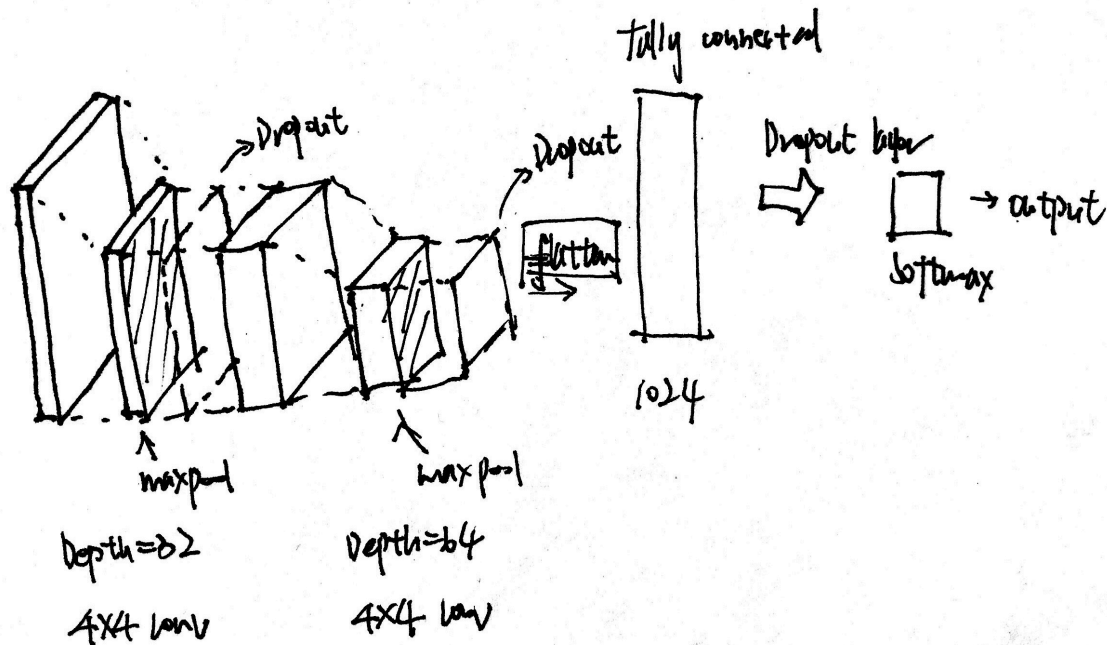 Fully connected
Dropout
Dropout
Dropout layer
flatten
→ output
softmax
1024
maxpool
maxpool
Depth=32
Depth=64
4x4 conv
4x4 conv